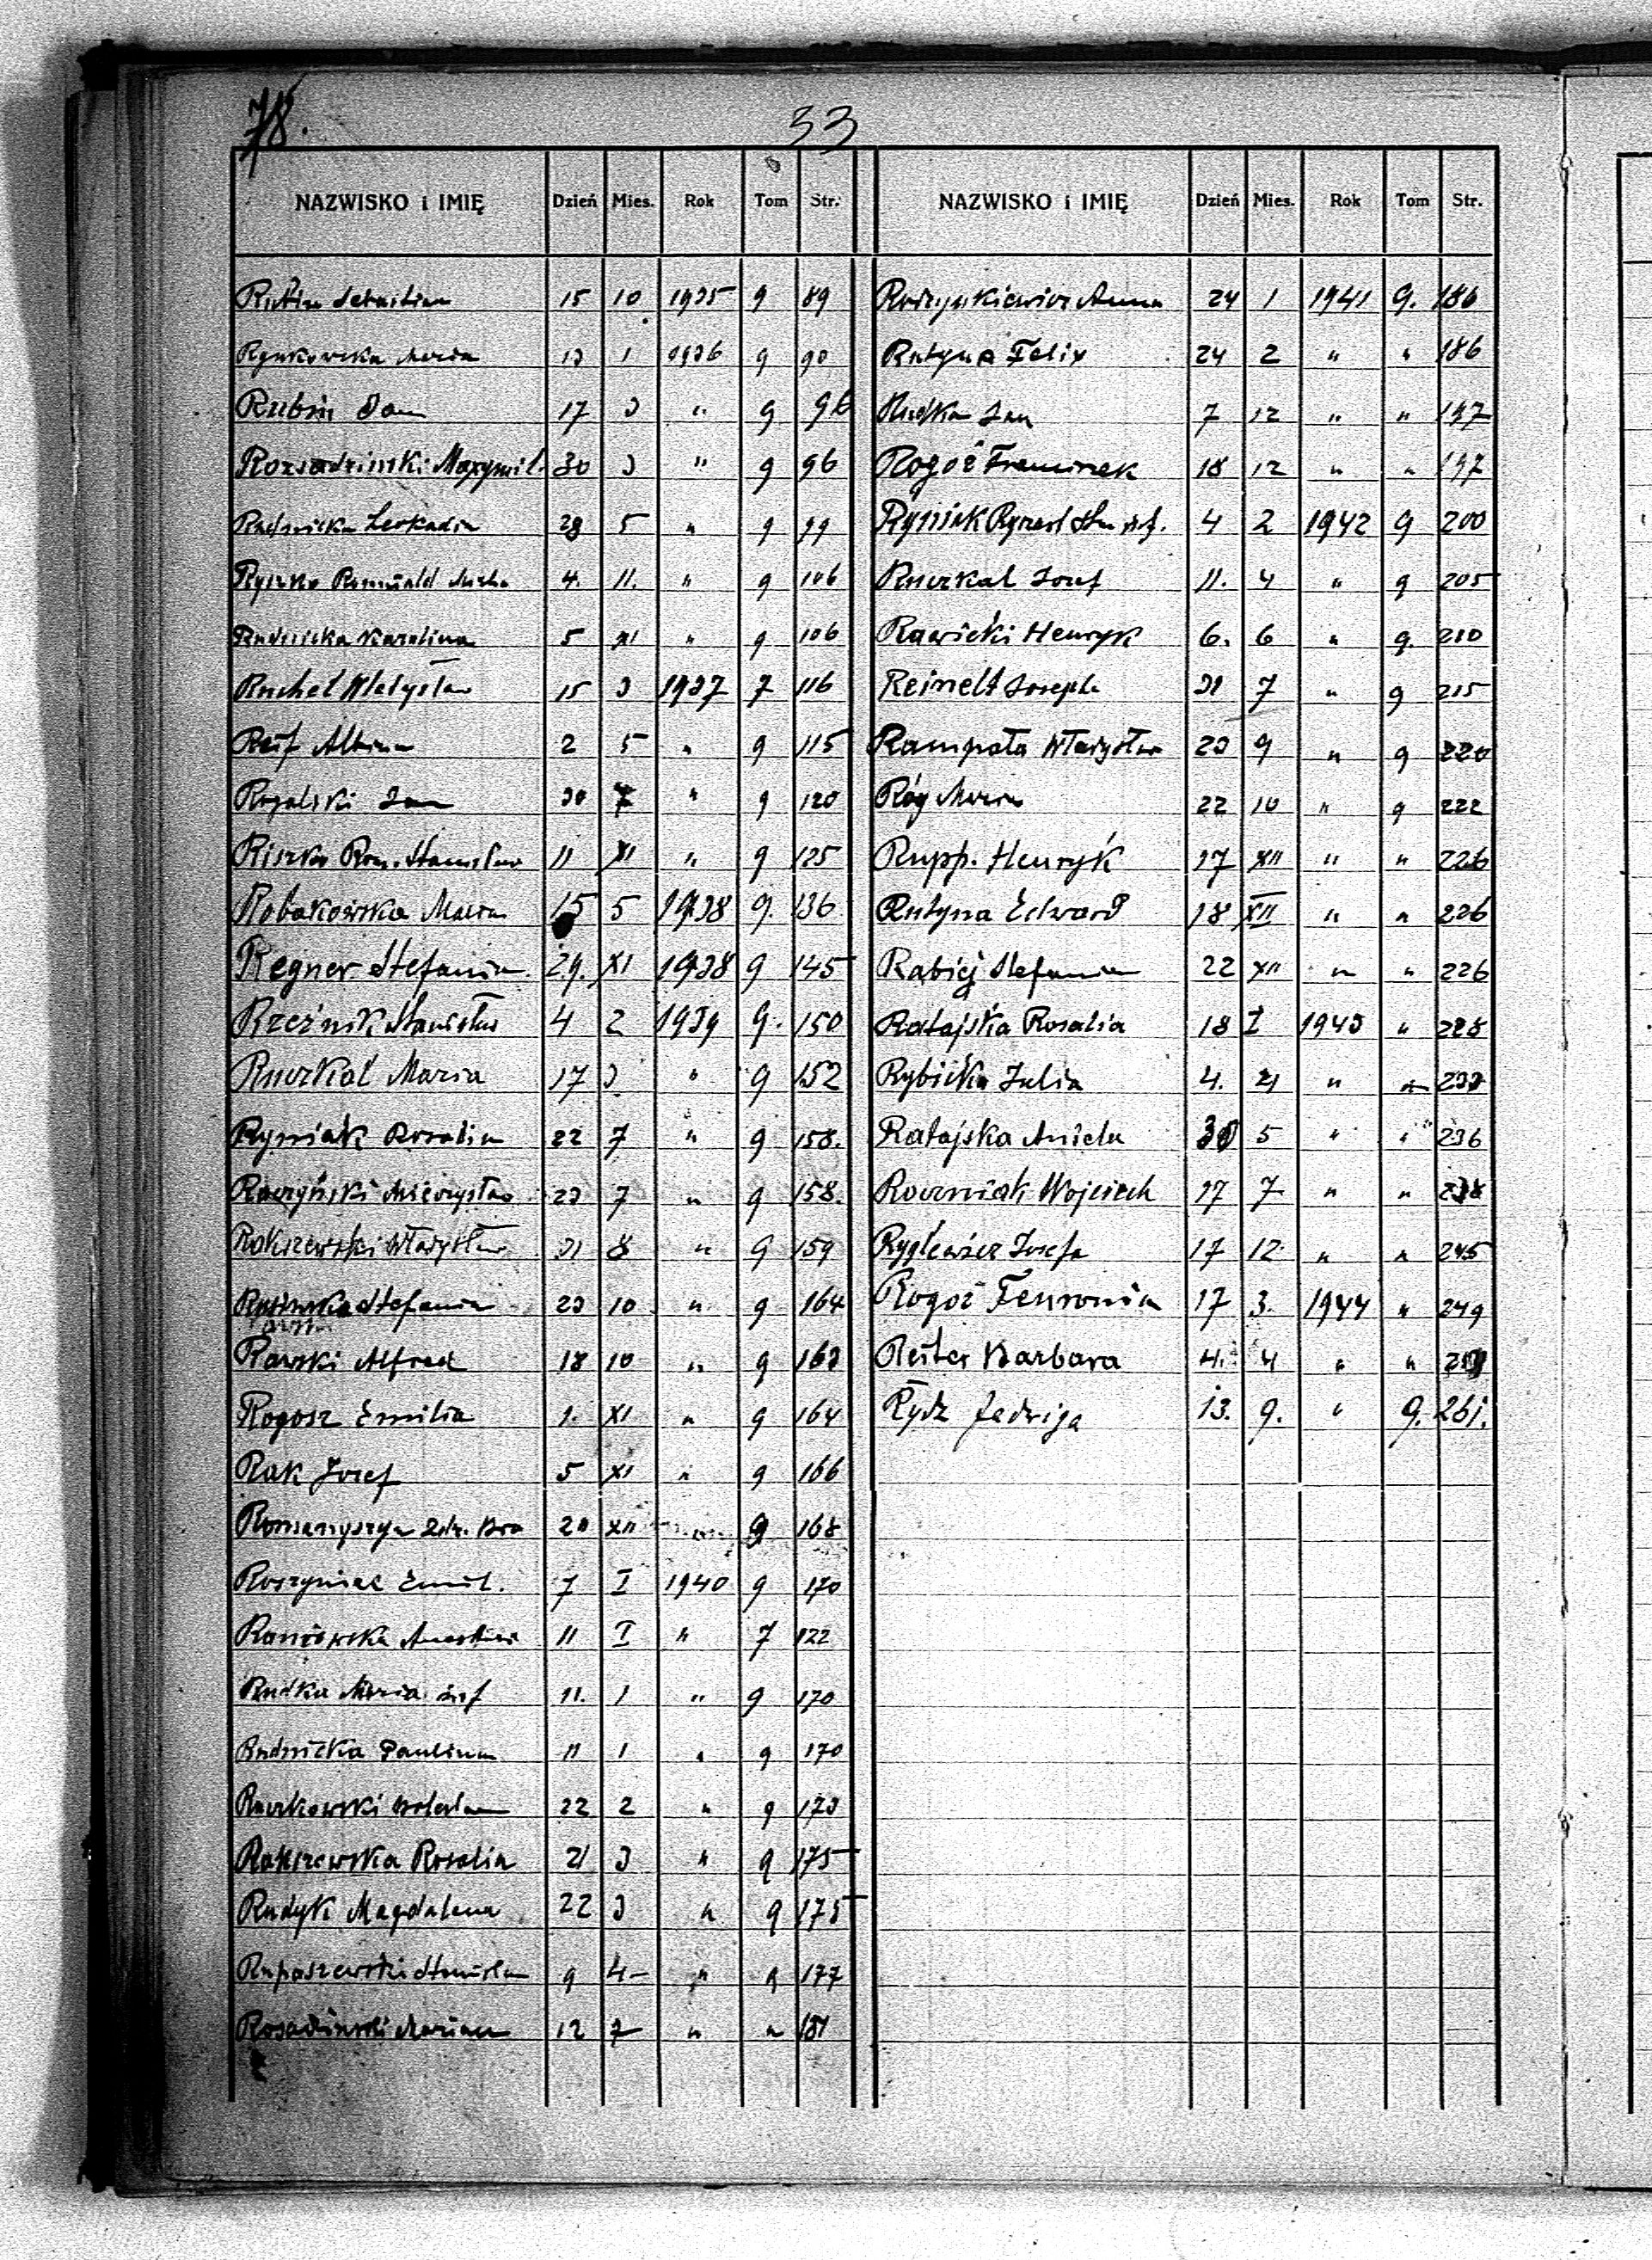 78.
33
NAZWISKO i IMIĘ Dzień Mies. Rok Tom Str.
Sebastian 15 10 1935 9 89
Rynkowska Maria 13 1 1936 9 90
Rubin Jan 17 3 " 9 96
Rozsadzinski Maxymil. 30 3 " 9 96
Rudnicka Leokadia 28 5 " 9 99
Ryszko Romuald 4. 11. " 9 106
Rudnicka Karolina 5 XI " 9 106
Ruchel Władysław 15 3 1937 7 116
Reif Albina 2 5 " 9 115
Rogalski Jan 30 7 " 9 120
Riszko Rom. Stanisław 11 XI " 9 125
Robakowska Maria 15 5 1938 9. 136
Regner Stefania 29. XI 1938 9 145
Rzeźnik Stanisław 4 2 1939 9. 150
Ruczkal Maria 17 3 " 9 152
Rysiak Rosalia 22 7 " 9 158.
Raczyński Mieczysław 23 7 " 9 158.
Rokiszewski Władysław 31 8 " 9 159
Rusinska Stefania 23 10 " 9 164
Rawski Alfred 18 10 " 9 163
Rogosz Emilia 1. XI " 9 164
Rak Josef 5 XI " 9 166
Romanyszyn XII 9 168
Roszyniak Emil. 7 I 1940 9 170
11 I " 7 122
Rudka Maria inf 11. 1 " 9 170
Rudnicka Paulina 11 1 " 9 170
Raczkowski Bolesław 22 2 " 9 173
Rakszewska Rosalia 21 3 " 9 175
Rudyk Magdalena 22 3 " 9 175
Rupaszewski Stanisław 9 4 " 9 177
Rosadzinski Marian 12 7 " " 181
NAZWISKO i IMIĘ Dzień Mies. Rok Tom Str.
Anna 24 1 1941 9. 186
Rutyna Felix 24 2 " " 186
Rudka Jan 7 12 " " 197
Rogoż Franciszek 18 12 " " 197
Rysiak Ryszard 4 2 1942 9 200
Ruczkal Josef 11. 4 " 9 205
Rawicki Henryk 6. 6 " 9. 210
Reinelt Joseph 31 7 " 9 215
Rampała Władysław 23 9 " 9 220
Róg Maria 22 10 " 9 222
Rupp. Henryk 17 XII " " 226
Rutyna Edward 18 XII " " 226
Rabiej Stefania 22 XII " " 226
Ratajska Rosalia 18 I 1943 " 228
Rybicka Julia 4. 4 " " 233
Ratajska Aniela 30 5 " " 236
Roczniak Wojciech 17 7 " " 238
Ryglewicz Josefa 17 12 " " 245
Rogoż Fenronia 17 3. 1944 " 249
Reiter Barbara 4. 4 " "
Rydz Jadwiga 13. 9. " 9. 261.